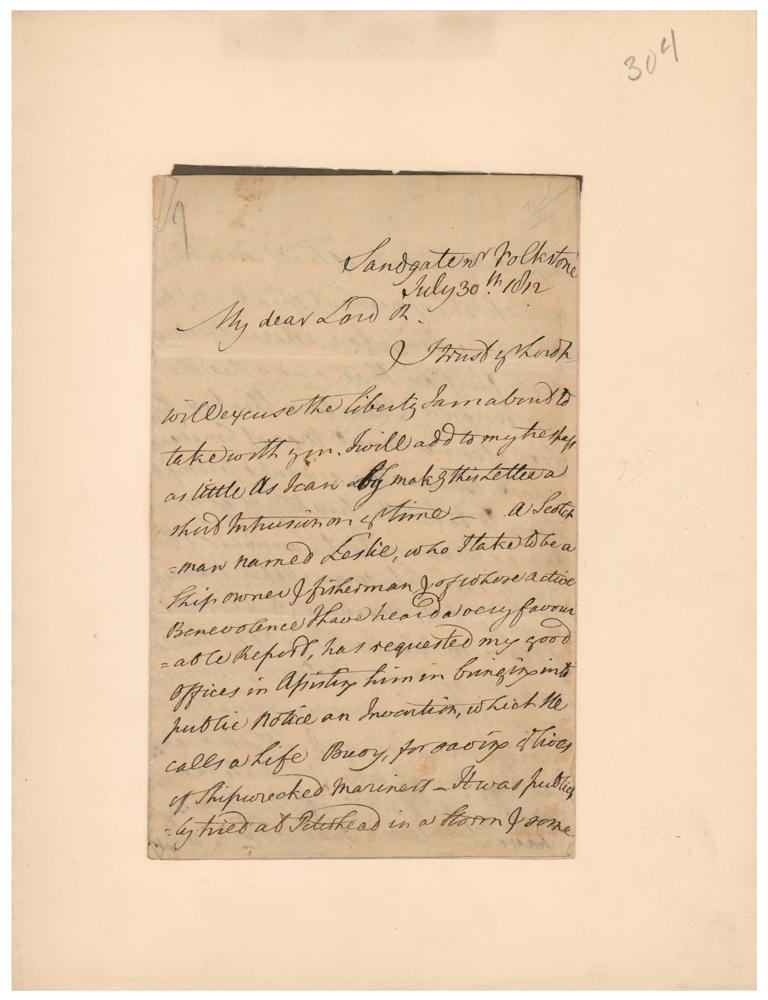 304
Sandgate nr Folkstone
July 30th 1812
My dear Lord
I trust yr Lordp
will excuse the liberty I am about to
take with you. I will add to my trespass
as little as I can by makg this Letter a
short Intrusion on yr time — A Scotch
=man named Leslie, who I take to be a
Ship owner & fisherman & of whose active
Benevolence I have heard a very favour
=able Report, has requested my good
offices in Assisting him in bringing into
public Notice an Invention, which He
calls a Life Buoy, for saving ye lives
of Shipwrecked Mariners — It was public
=ly tried at Peterhead in a Storm & some